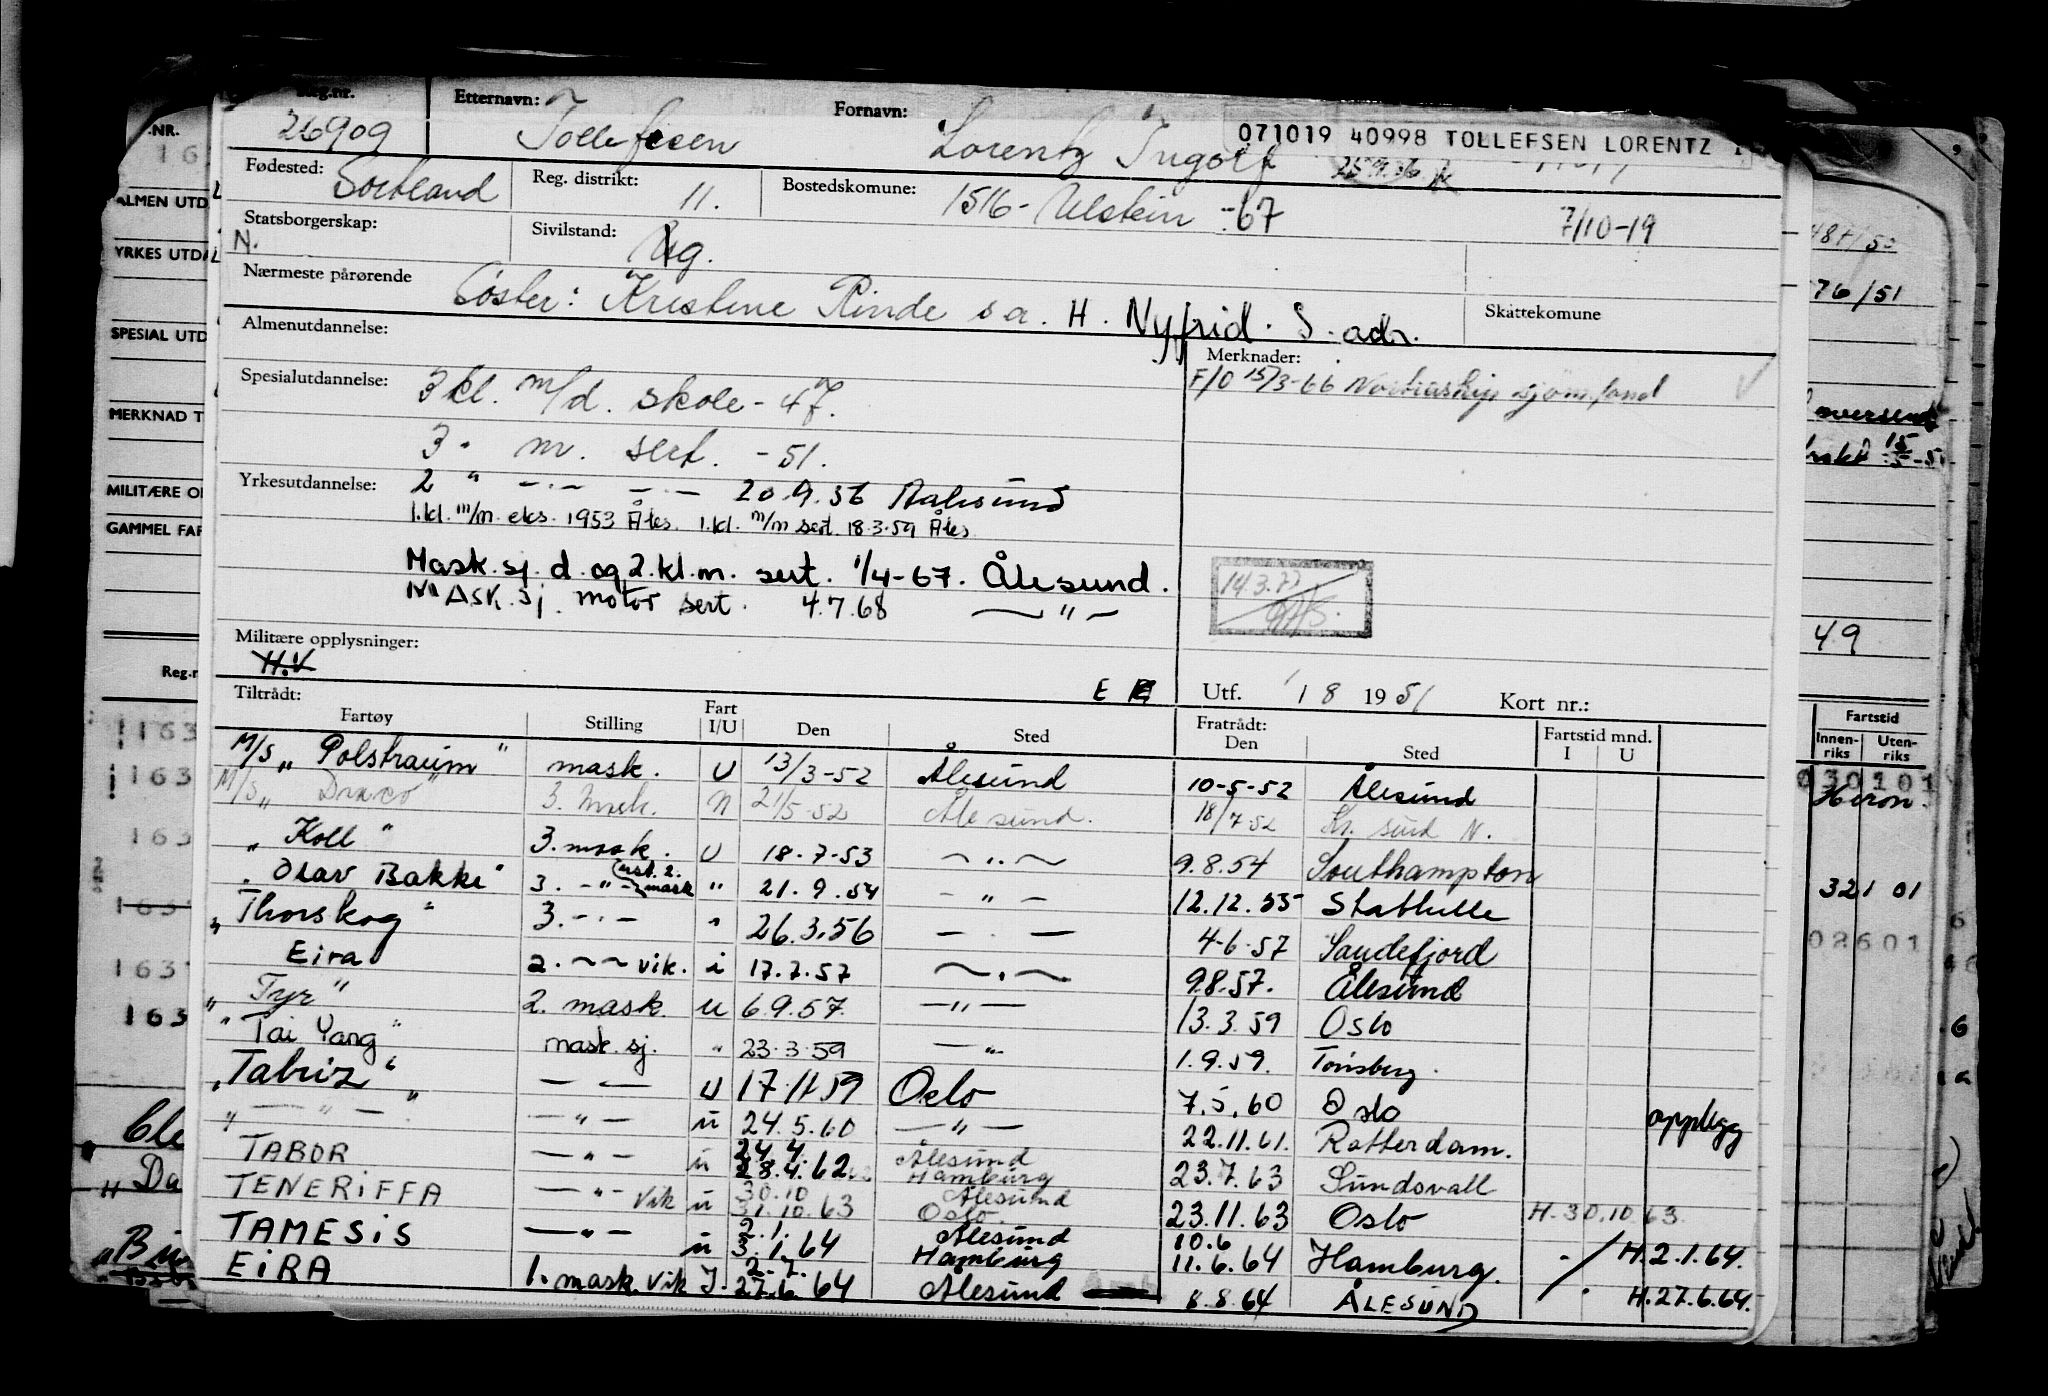 Reg.nr. Etternavn: Fornavn:
26909 Tollefsen Lorentz Ingolf
071019 40998 TOLLEFSEN LORENTZ I
Fødested: Reg. distrikt: Bostedskomune:
Sortland 11. 1516 - Ulstein -67 7/10-19
Statsborgerskap: Sivilstand:
N. Ug.
Nærmeste pårørende Skattekomune
Søster: Kristine Rinde s a. H. Nyfrid. S. adr.
Almenutdannelse: Merknader:
F/O 15/3-66 Nortraship sjøm.fond
Spesialutdannelse:
3 kl. m/d. skole - 47.
3 " m. sert. - 51.
Yrkesutdannelse:
2 " — . — — . — 20.9.56 Aalesund
1.kl. m/m. eks. 1953 Åles. 1.kl. m/m sert. 18.3.59 Åles
Mask.sj. d. og 2.kl.m. sert. 1/4-67. Ålesund.
Mask. sj. motor sert. 4.7.68 — " —
14.3.77
Militære opplysninger:
H.V
Tiltrådt: E Utf. 1 8 1951 Kort nr.:
Fartøy Stilling Fart I/U Den Sted Fratrådt: Den Sted Fartstid mnd. I U
M/S „ Polstraum " mask. U 13/3-52 Ålesund 10-5-52 Ålesund
M/S „ Draco " 3. mask. N 21/5-52 Ålesund. 18/7-52 Kr. sund N.
„ Koll " 3. mask. U 18-7-53 — " — 9.8.54 Southampton
„ Olav Bakke " 3. — " — mask " 21.9.54 — " — 12.12.55 Stathelle
„ Thorskog " 3. — " — " 26.3.56 — " — 4-6-57 Sandefjord
Eira 2. — — vik. i 17.7.57 — " — 9.8.57. Ålesund
„ Tyr " 2. mask. u 6.9.57. — " — 13.3.59 Oslo
" Tai Yang " mask. sj. " 23.3.59 — " — 1.9.59. Tønsberg.
„ Tabriz " — — U 17.11.59 Oslo 7.5.60 Oslo opplegg
" — " — " — " — u 24.5.60 — " — 22.11.61. Rotterdam.
TABOR — " — u 24.4. 28.4.62 Ålesund Hamburg 23.7.63 Sundsvall
TENERIFFA — " — Vik u 30.10 31.10.63 Ålesund Oslo. 23.11.63 Oslo H.30.10.63.
TAMESIS — " — u 2.1. 3.1.64 Ålesund Hamburg 10.6 11.6.64 Hamburg. H.2.1.64.
EIRA 1. mask. vik I. 27.6.64 Ålesund 8.8.64 ÅLESUND H.27.6.64.
.NR.
ALMEN UTD
YRKES UTDA
SPESIAL UTD
MERKNAD T
MILITÆRE O
GAMMEL FAR
Reg.n
163
163
163
163
163
163
Da
487/52
76/51
49
Fartstid
Innen-riks Uten-riks
030101
321 01
02601